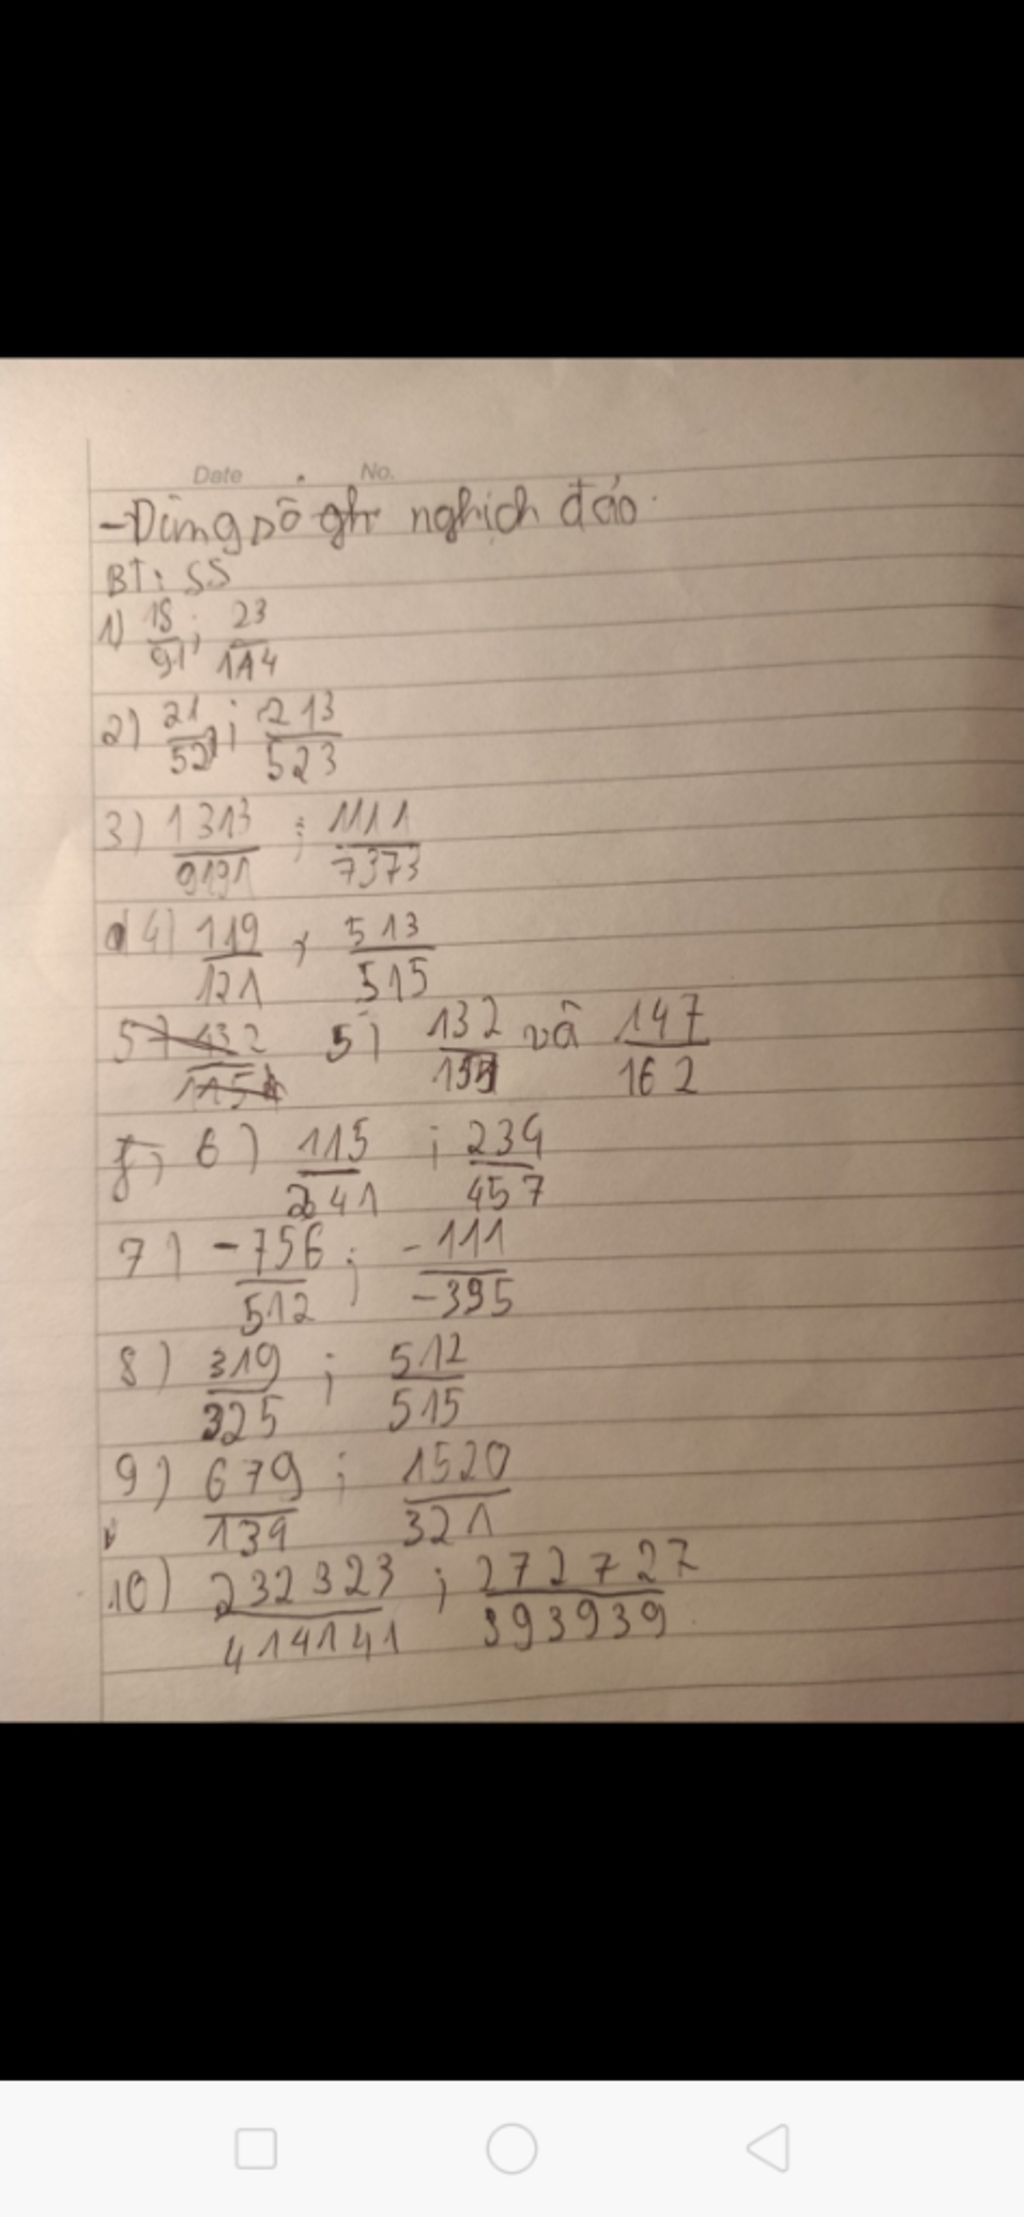 Date No.
-Dùng số ghi nghịch đảo.
BT: SS
1) 18/91 ; 23/114
2) 21/52 ; 213/523
3) 1313/9191 ; 1111/7373
4) 119/121 , 513/515
5) 132 5) 132 và 147/162
6) 115/241 ; 234/457
7) -756/512 ; -111/-395
8) 319/325 ; 512/515
9) 679/139 ; 1520/321
10) 232323/414141 ; 272727/393939